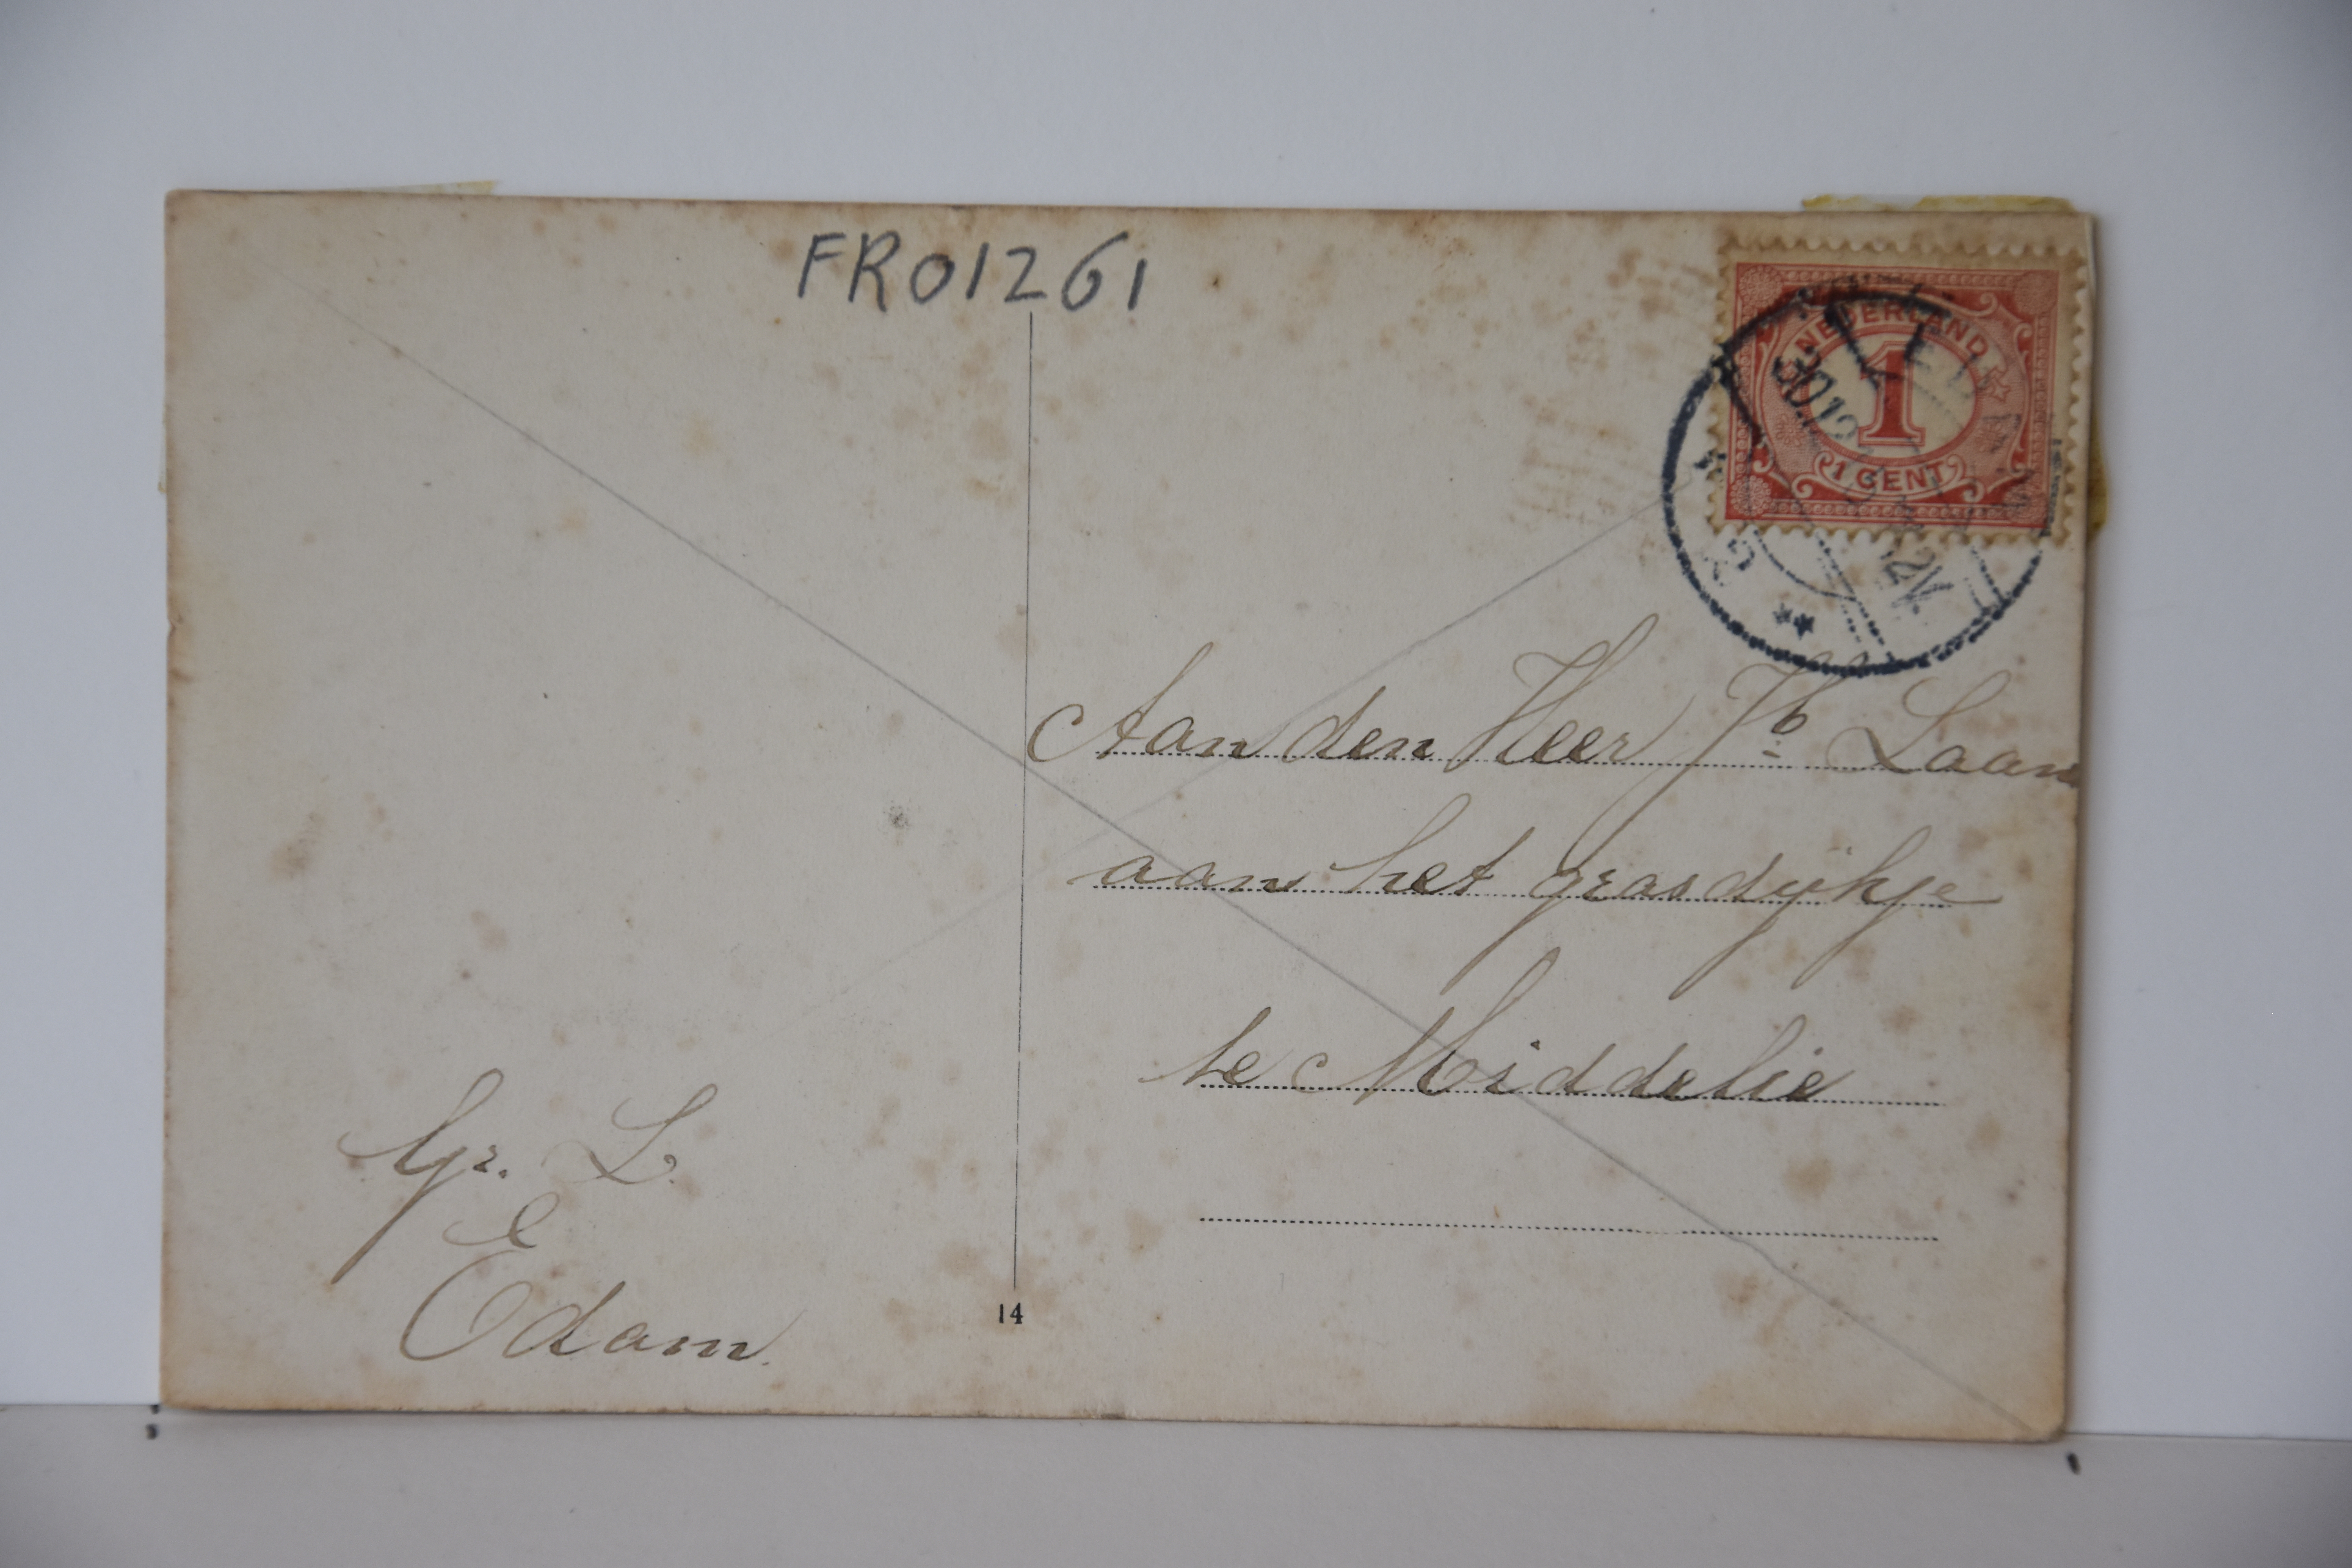 FR01261
NEDERLAND
1
1 CENT
30.12
12V.
Aan den Heer Jb Laan
aan het grasdijkje
te Middelie
Gr. L.
Edam.
14